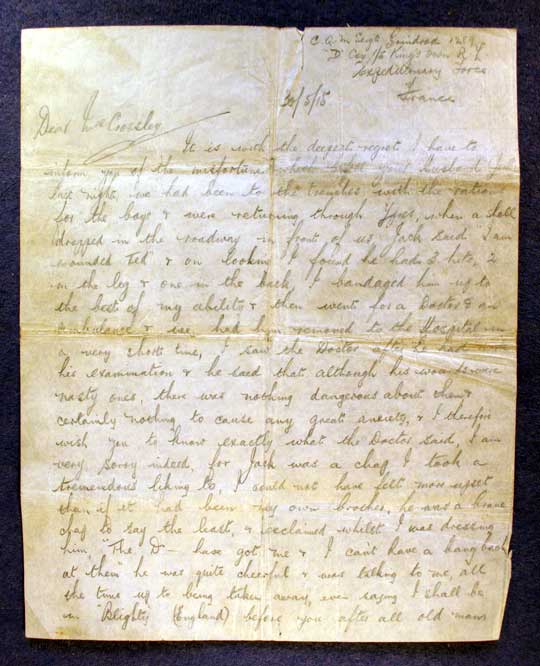 C. Q. M. Sergt Grindrod 1289
D Coy 1/5 King's Own R. L
Expeditionary Force
France
20/5/15
Dear Mrs Crossley
It is with the deepest regret I have to
inform you of the misfortune which befel your Husband Jack
last night, we had been to the trenches with the rations
for the boys & were returning through Ypres, when a shell
dropped in the roadway in front of us, Jack said "I am
wounded Ted" & on looking I found he had 3 hits, 2
in the leg & one in the back, I bandaged him up to
the best of my ability & then went for a Doctor & an
ambulance & we had him removed to the Hospital in
a very short time, I saw the Doctor after
his examination & he said that although his wounds were
nasty ones, there was nothing dangerous about them &
certainly nothing to cause any great anxiety, & I therefore
wish you to know exactly what the Doctor said, I am
very sorry indeed, for Jack was a chap I took a
tremendous liking to, I could not have felt more upset
than if it had been my own brother, he was a brave
chap to say the least, & exclaimed whilst I was dressing
him, "The D— have got me & I can't have a bang back
at them" he was quite cheerful & was talking to me, all
the time up to being taken away, even saying I shall be
in "Blighty (England) before you after all old man